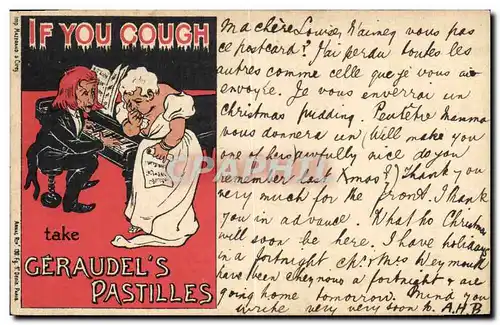 IF YOU COUGH
take
GÉRAUDEL'S
PASTILLES
CPHRIL
Ma chère Louise, N'aimez vous pas
ce postcard? J'ai perdu toutes les
autres comme celle que je vous ai
envoyée. Je vous enverrai un
Christmas pudding. Peutêtre Mamma
vous donnera un. Will make you
one of hers awfully nice do you
remember last Xmas?) Thank you
very much for the front. I thank
you in advance. What ho Christmas
will soon be here. I have holidays
in a fortnight. Mr & Mrs Weymouth
have been chez nous a fortnight & are
going home tomorrow. Mind you
write very very soon to A.H.B